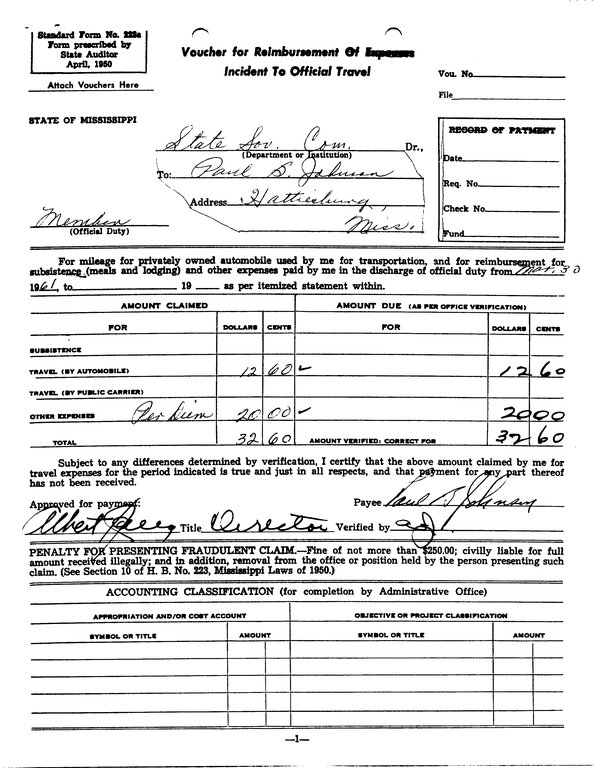 Standard Form No. 223a
Form prescribed by
State Auditor
April, 1950
Attach Vouchers Here
Voucher for Reimbursement Of Expenses
Incident To Official Travel
Vou. No.
File
STATE OF MISSISSIPPI
State Sov. Com. Dr.,
(Department or Institution)
To: Paul B. Johnson
Address Hattiesburg,
Miss.
Member
(Official Duty)
RECORD OF PAYMENT
Date
Req. No.
Check No.
Fund
For mileage for privately owned automobile used by me for transportation, and for reimbursement for
subsistence (meals and lodging) and other expenses paid by me in the discharge of official duty from Mar. 30
1961, to 19 as per itemized statement within.
AMOUNT CLAIMED AMOUNT DUE (AS PER OFFICE VERIFICATION)
FOR DOLLARS CENTS FOR DOLLARS CENTS
SUBSISTENCE
TRAVEL (BY AUTOMOBILE) 12 60 ✓ 12 60
TRAVEL (BY PUBLIC CARRIER)
OTHER EXPENSES Per Diem 20 00 ✓ 20 00
TOTAL 32 60 AMOUNT VERIFIED: CORRECT FOR 32 60
Subject to any differences determined by verification, I certify that the above amount claimed by me for
travel expenses for the period indicated is true and just in all respects, and that payment for any part thereof
has not been received.
Approved for payment: Payee Paul B Johnson
Albert Jones Title Director Verified by
PENALTY FOR PRESENTING FRAUDULENT CLAIM.—Fine of not more than $250.00; civilly liable for full
amount received illegally; and in addition, removal from the office or position held by the person presenting such
claim. (See Section 10 of H. B. No. 223, Mississippi Laws of 1950.)
ACCOUNTING CLASSIFICATION (for completion by Administrative Office)
APPROPRIATION AND/OR COST ACCOUNT OBJECTIVE OR PROJECT CLASSIFICATION
SYMBOL OR TITLE AMOUNT SYMBOL OR TITLE AMOUNT
—1—